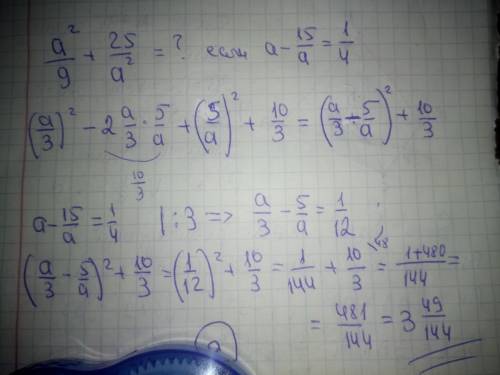 a²/9 + 25/a² = ? если a - 15/a = 1/4
(a/3)² - 2 a/3 · 5/a + (5/a)² + 10/3 = (a/3 - 5/a)² + 10/3
10/3
a - 15/a = 1/4 | : 3 => a/3 - 5/a = 1/12
(a/3 - 5/a)² + 10/3 = (1/12)² + 10/3 = 1/144 + 10/3 \48 = 1+480/144 =
= 481/144 = 3 49/144